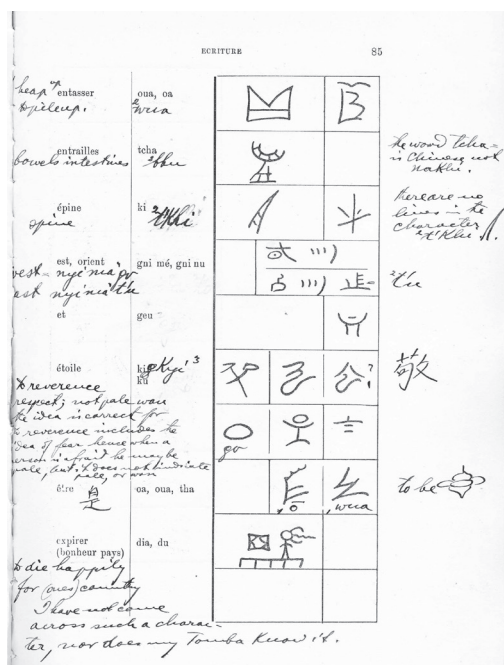 ECRITURE 85
heap up entasser oua, oa
to pile up. ²wua
entrailles tcha
bowels intestines ²bbu
the word tcha =
is Chinese not
nakhi.
épine ki
spine
there are no
lines in the
character
est, orient gni mé, gni nu
²t'u
et geu
étoile ki
ku
敬
to reverence
respect; not pale wan
the idea is correct for
reverence includes the
idea of fear hence when a
person is afraid he may be
pale, but it does not indicate
pale, or wan
go
être oa, oua, tha
是
, wua
to be
expirer dia, du
(bonheur pays)
to die happily
for (ones) country
I have not come
across such a charac-
ter, nor does my Tomba know it.